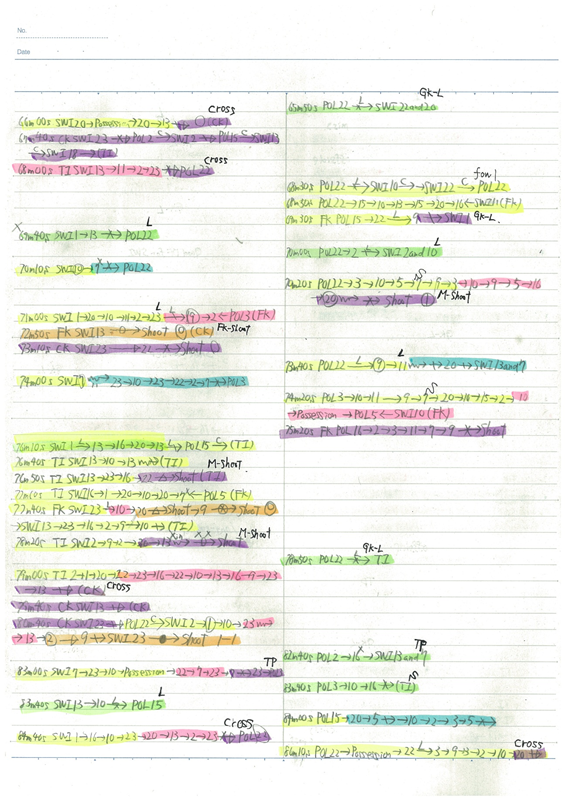 No.
Date
66m00s SWI20→Possession→20→13→ ①(CK)
Cross
67m40s CK SWI23 → POL2 C→SWI2 → POL15 C→SWI13
C→SWI18→(TI)
68m00s TI SWI13→11→2→23 → POL22
Cross
69m40s SWI1→13→POL22
L
70m10s SWI →9→POL22
71m00s SWI1→20→10→11→2→23 →⑨→2←POL3(FK)
L
72m50s FK SWI13→Shoot (CK)
FK-Shoot
73m10s CK SWI23 →22→Shoot
74m00s SWI1 →23→10→23→22→2→9→POL3
76m10s SWI1→13→16→20→13→POL15 C→(TI)
76m40s TI SWI13→10→13→(TI)
76m50s TI SWI13→23→16→22→Shoot (TI)
M-Shoot
77m10s TI SWI16→1→20→10→20→9←POL5(FK)
77m40s FK SWI23→10→20→Shoot→9→Shoot
→SWI13→23→16→2→9→10→(TI)
78m20s TI SWI2→9→2→ 13→ Shoot
M-Shoot
79m00s TI 2→1→20→22→23→16→22→10→13→16→9→23
→13→(CK)
Cross
79m40s CK SWI13→(CK)
CK SWI23→POL22 C→SWI2→①→10→23
→13→②→9→SWI23→Shoot 1-1
83m00s SWI7→23→10→Possession→22→7→23→
TP
83m40s SWI13→10→POL15
L
84m40s SWI1→16→10→23→20→13→2→23→POL
Cross
65m50s POL22→SWI22and20
GK-L
68m30s POL22→SWI10 C→SWI22 C→POL22
foul
68m50s POL22→15→16→13→15→20→16←SWI11(FK)
69m30s FK POL15→22→9→SWI1
GK-L
70m00s POL22→2→SWI2and10
L
70m20s POL22→3→10→5→9→9→3→10→9→5→16
S
→20→Shoot ①
M-Shoot
73m40s POL22→⑨→11→20→SWI13and7
L
74m20s POL3→10→11→9→9→20→16→15→2→10
S
→Possession→POL5←SWI10(FK)
75m20s FK POL16→2→3→11→7→9→Shoot
78m50s POL22→TI
GK-L
82m40s POL2→16→SWI13and7
TP
83m40s POL3→10→16→(TI)
S
84m00s POL15→20→5→10→2→3→5→
86m10s POL22→Possession→22→3→9→13→2→10→20
Cross